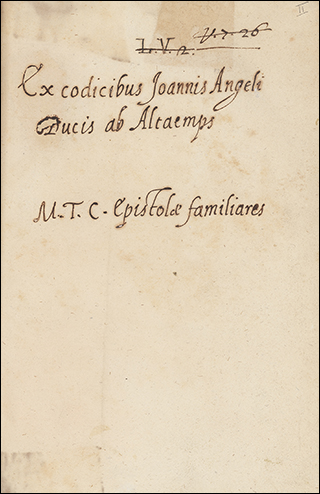 II
V.7.26
L.V.2.
Ex codicibus Joannis Angeli
Ducis ab Altaemps
M.T.C. Epistolæ familiares